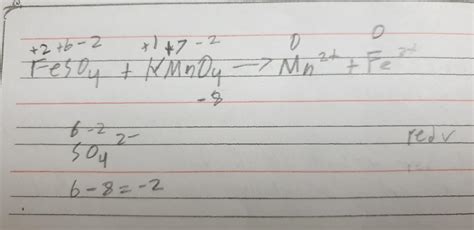 +2 +6 -2 +1 +7 -2 0 0
FeSO4 + KMnO4 → Mn²⁺ + Fe
-8
6 -2
SO4 ²⁻
6 - 8 = -2